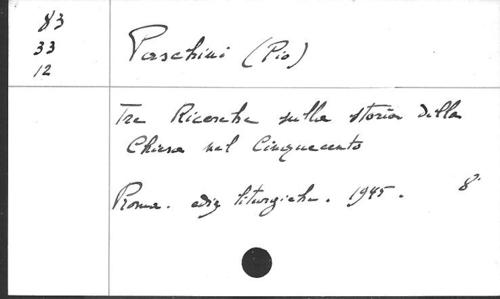 83
33
12
Paschini (Pio)
Tre Ricerche sulla storia della
Chiesa nel Cinquecento
Roma. ediz liturgiche. 1945. 8°